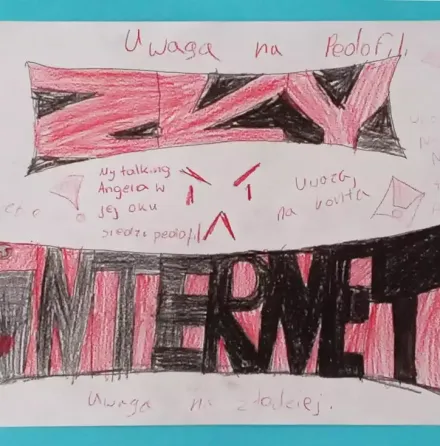 Uwaga na Pedofili
ZŁY
My talking
Angela w
jej oku
siedzi pedofil
Uważaj
na
INTERNET
Uwaga na złodziej.